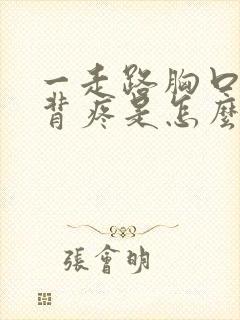 一走路胸口
背疼是怎麼
張會明